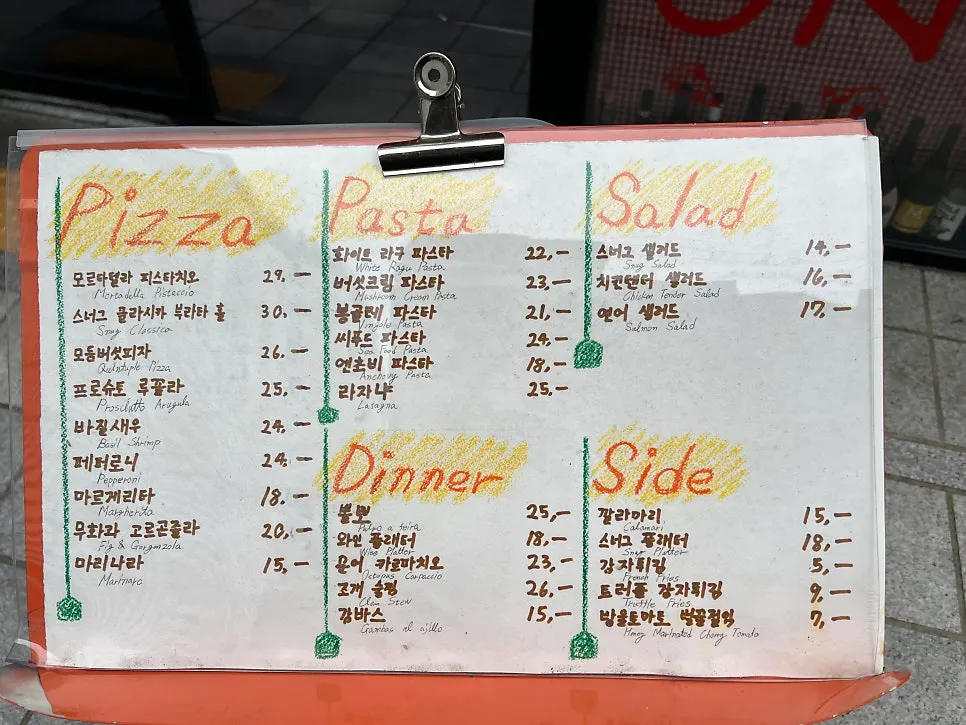 Pizza
모르타델라 피스타치오 29.—
Mortadella Pistaccio
스너그 클라시카 부라타 홀 30.—
Snug Classica
모둠버섯피자 26.—
Quintuple Pizza
프로슈토 루꼴라 25,—
Prosciutto Arugula
바질새우 24.—
Basil Shrimp
페퍼로니 24.—
Pepperoni
마르게리타 18.—
Margherita
무화과 고르곤졸라 20,—
Fig & Gorgonzola
마리나라 15,—
Marinara
Pasta
화이트 라구 파스타 22,—
White Ragu Pasta
버섯크림 파스타 23,—
Mushroom Cream Pasta
봉골레 파스타 21,—
Vongole Pasta
씨푸드 파스타 24.—
Sea Food Pasta
엔초비 파스타 18,—
Anchovy Pasta
라자냐 25.—
Lasagna
Salad
스너그 샐러드 14,—
Snug Salad
치킨텐더 샐러드 16,—
Chicken Tender Salad
연어 샐러드 17.—
Salmon Salad
Dinner
뽈뽀 25,—
Pulpo a feira
와인 플래터 18,—
Wine Platter
문어 카르파치오 23,—
Octopus Carpaccio
조개 술찜 26,—
Clam Stew
감바스 15,—
Gambas al ajillo
Side
깔라마리 15,—
Calamari
스너그 플래터 18,—
Snug Platter
감자튀김 5,—
French Fries
트러플 감자튀김 9,—
Truffle fries
방울토마토 벌꿀절임 7,—
Honey Marinated Cherry Tomato